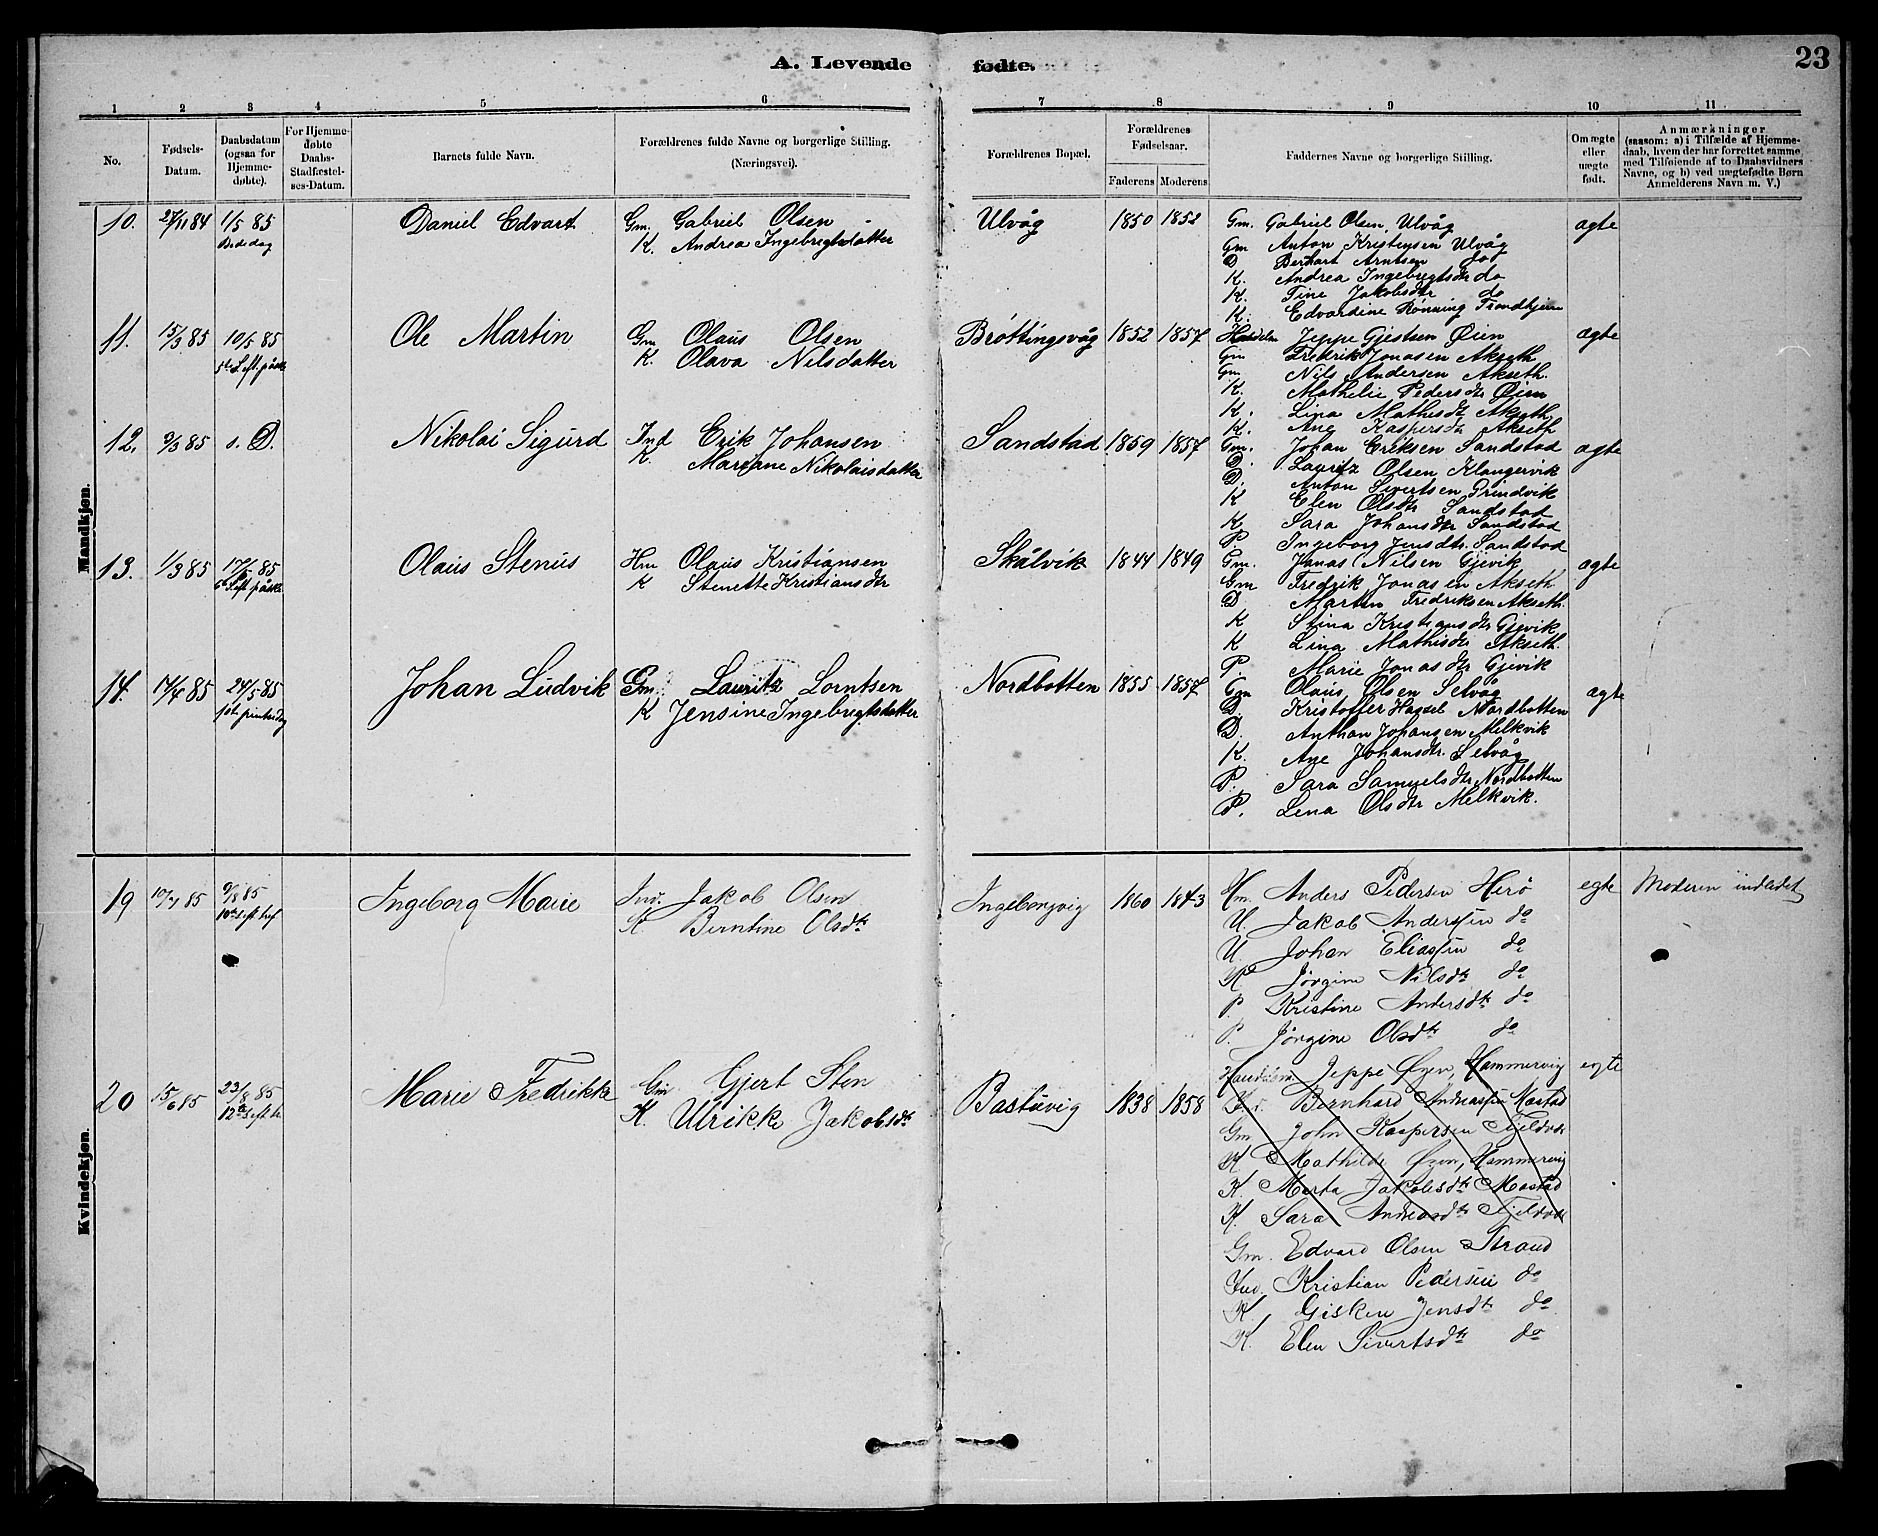 A. Levende fødte. 23
1 2 3 4 5 6 7 8 9 10 11
No.
Fødsels-
Datum.
Daabsdatum
(ogsaa for
Hjemme-
døbte).
For Hjemme-
døbte
Daabs-
Stadfæstel-
ses-Datum.
Barnets fulde Navn.
Forældrenes fulde Navne og borgerlige Stilling.
(Næringsvei).
Forældrenes Bopæl.
Forældrenes
Fødselsaar.
Faderens Moderens
Faddernes Navne og borgerlige Stilling.
Om ægte
eller
uægte
født.
Anmærkninger
(saasom: a) i Tilfælde af Hjemme-
daab, hvem der har forrettet samme,
med Tilføiende af to Daabsvidners
Navne, og b) ved uægtefødte Børn
Anmelderens Navn m. V.)
Mandkjøn.
10. 27/11 84 1/5 85 Daniel Edvart Gm. Gabriel Olsen Ulvåg 1850 1852 Gm. Gabriel Olsen, Ulvåg ægte
Bededag K. Andrea Ingebrigtsdatter Gm Anton Kristensen Ulvåg
D Berhart Arntsen do
K. Andrea Ingebrigtsdtr do
K. Tine Jakobsdtr do
K. Edvardine Rønning Trondhjem
11. 15/3 85 10/5 85 Ole Martin Gm Olaus Olsen Brøttingsvåg 1852 1857 Handelsm Jeppe Gjestsen Øien ægte
5te S. eft. påske K Olava Nilsdatter Gm Frederik Jonasen Akseth
Gm Nils Andersen Akseth.
K. Mathelie Pedersdtr Øien
K. Lina Mathisdtr Akseth
K. Ane Kaspersdtr Akseth
12. 9/3 85 s. D. Nikolai Sigurd Ind Erik Johansen Sandstad 1859 1857 Gm. Johan Eriksen Sandstad ægte
K. Mariane Nikolaisdatter D. Lauritz Olsen Klangervik
D. Anton Sivertsen Prindvik
K Elen Olsdtr Sandstad
K Sara Johansdtr Sandstad
P. Ingeborg Jensdtr. Sandstad
13. 1/3 85 17/5 85 Olaus Stenus Hm Olaus Kristiansen Skålvik 1844 1849 Gm. Jonas Nilsen Gjevik ægte
6te S. eft. påske K Stenette Kristiansdtr Gm Fredrik Jonasen Akseth
D Martin Fredriksen Akseth.
K Stina Kristiansdtr Gjevik
K Lina Mathisdtr Akseth.
P. Marie Jonasdtr Gjevik
14. 14/4 85 24/5 85 Johan Ludvik Gm. Lauritz Lorntsen Nordbotten 1855 1857 Gm Olaus Olsen Selvåg ægte
1ste pintsedag K Jensine Ingebrigtsdatter D. Kristoffer Hassel Nordbotten
D. Anthon Johansen Melkvik
K. Ane Johansdtr. Selvåg
P. Sara Samuelsdtr Nordbotten
P. Lena Olsdtr Melkvik.
Kvindekjøn.
19 85 9/8 85 Ingeborg Marie Ind. Jakob Olsen Ingeborgvig 1860 1843 Hm. Anders Pedersen Herø egte Moderen indledet
10de s. eft. tref K Berntine Olsdtr U. Jakob Anderssen do
U. Johan Eliassen do
K Jørgine Nilsdtr do
P. Kristine Andersdtr do
P. Jørgine Olsdtr do
20 15/6 85 23/8 85 Marie Fredrikke Gm Gjert Sten Bastuvig 1838 1858 Handelsm. Jeppe Øyen, Hammervig egte
12te s. eft. tr. K. Ulrikke Jakobsdtr Ind. Bernhard Andreassen Mastad
Gm John Kaspersen Fjeldvær
K Mathilde Øyen, Hammervig
K. Marta Jakobsdtr Mastad
K. Sara Andreasdtr Fjeldvær
Gm. Edvard Olsen Strand
Ind. Kristian Pedersen do
K Gisken Jensdtr do
K. Elen Sivertsdtr do